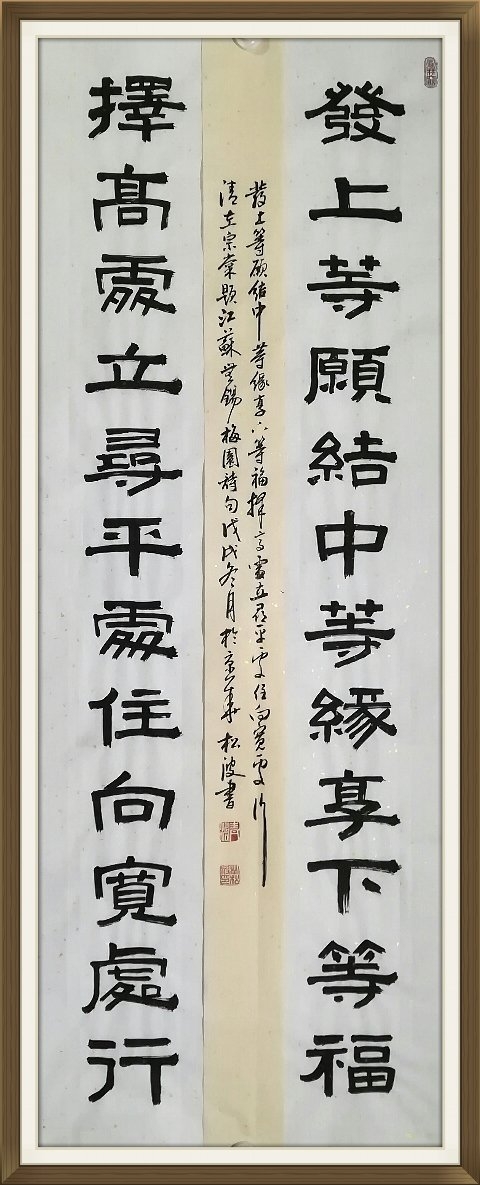 發上等願結中等緣享下等福
擇高處立尋平處住向寬處行
發上等願結中等緣享下等福擇高處立尋平處住向寬處行
清左宗棠題江蘇無錫梅園詩句戊戌冬月於京華松波書